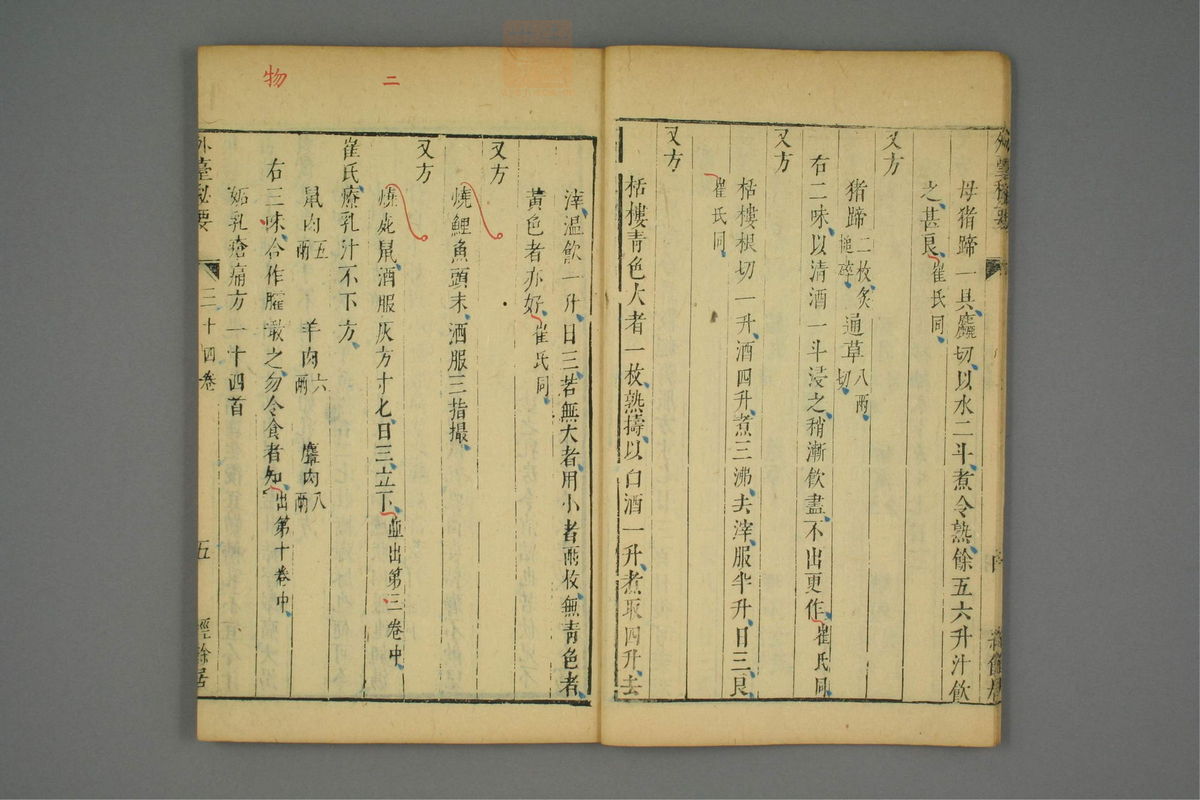 母猪蹄一具麤切以水二斗煮令熟餘五六升汁飲
之甚良崔氏同
又方
猪蹄二枚炙搥碎通草八兩切
右二味以清酒一斗浸之稍漸飲盡不出更作崔氏同
又方
栝樓根切一升酒四升煮三沸去滓服半升日三良
崔氏同
又方
栝樓青色大者一枚熟擣以白酒一升煮取四升去
物
二
滓温飲一升日三若無大者用小者兩枚無青色者
黃色者亦好崔氏同
又方
燒鯉魚頭末酒服三指撮
又方
燒死鼠酒服灰方寸匕日三立下並出第三卷中
崔氏療乳汁不下方
鼠肉五兩 羊肉六兩 麞肉八兩
右三味合作臛噉之勿令食者知出第十卷中
妬乳瘡痛方一十四首
外臺秘要 三十四卷 五 經餘居